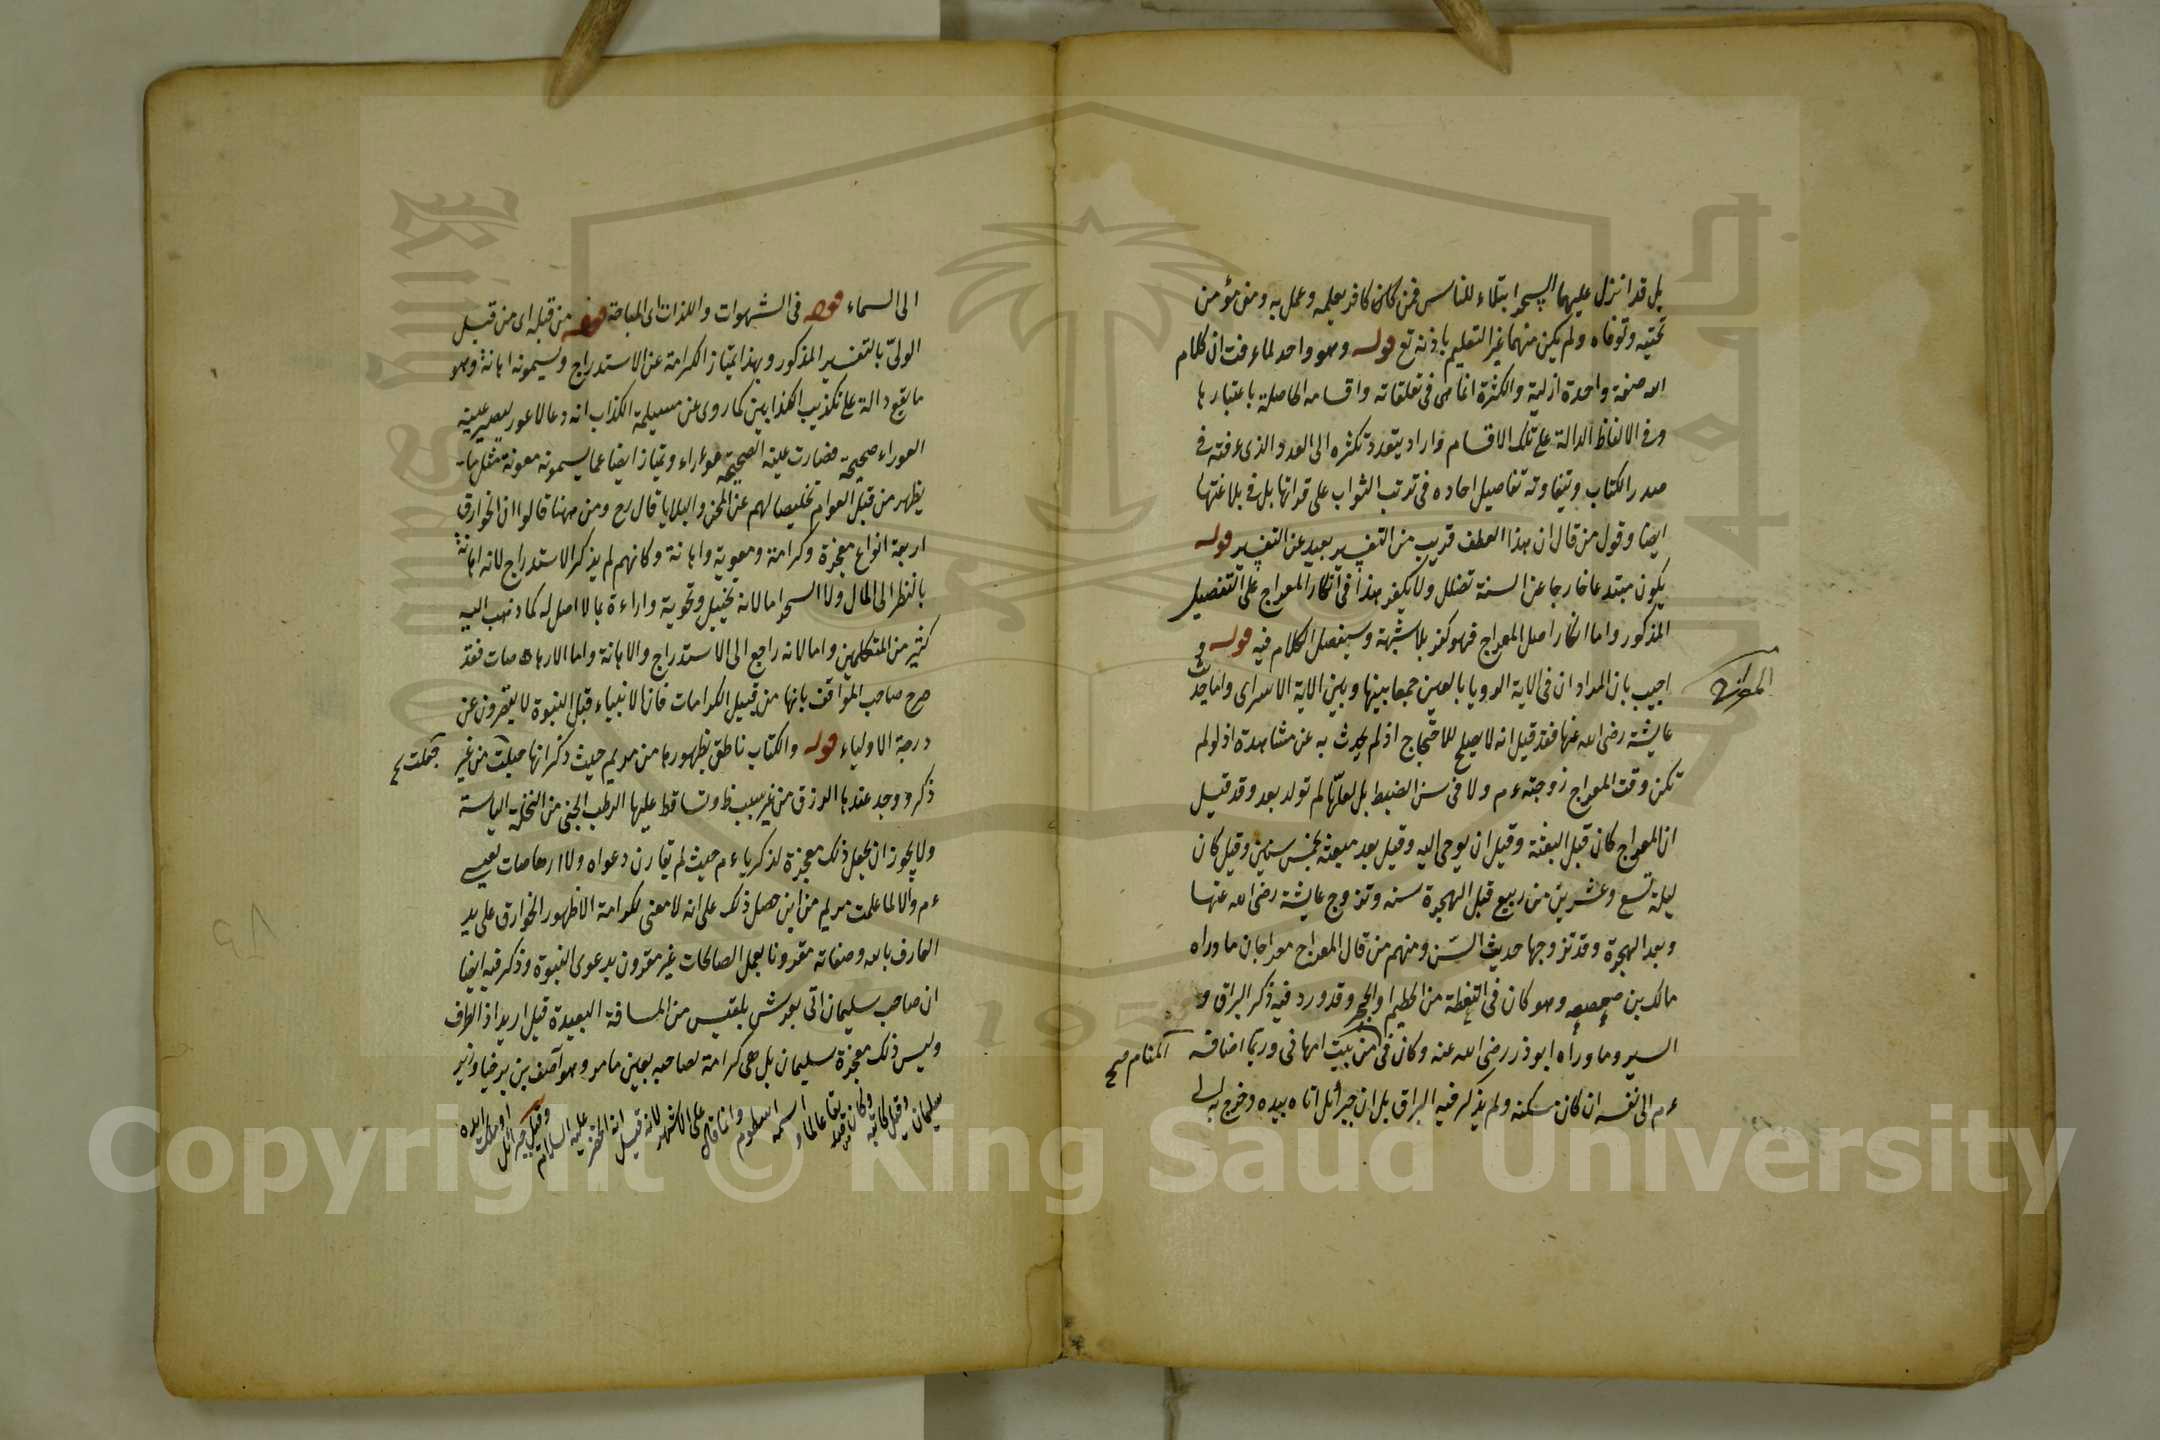 بل قد انزل عليهما السحر ابتلاء للناس فمن كان كافر يعلمه وعمل به ومن مؤمن
تجنبه وتوقاه ولم يكن منهما غير التعليم باذنه تع قوله وهو واحد لما عرفت ان كلام
الله صفة واحدة ازلية والكثرة انما هى فى تعلقاته واقسامه الحاصلة باعتبارها
وفى الالفاظ الدالة على تلك الاقسام واراد بتعدد تكثره الى العدد الذى عرفته فى
صدر الكتاب وبتفاوته تفاصيل احاده فى ترتب الثواب على قراتها بل فى بلاغتها
ايضا وقول من قال ان هذا العطف قريب من التفسير بعيد عن التفسير قوله
يكون مبتدعا خارجا عن السنة تضلل ولا يكفر هذا فى انكار المعراج على التفصيل
المذكور واما انكار اصل المعراج فهو كفر بلا شبهة وسيفصل الكلام فيه قوله و
اجيب بان المراد ان فى الاية الرويا بالعين جمعا بينها وبين الاية الاسرى واما حديث
عايشة رضى الله عنها فقد قيل انه لا يصلح للاحتجاج اذ لم يحدث به عن مشاهدة اذ لو لم
تكن وقت المعراج زوجته ءم ولا فى سن الضبط بل لعلها لم تولد بعد وقد قيل
ان المعراج كان قبل البعثة وقيل ان يوحى اليه وقيل بعد مبعثه بخمس سنين وقيل كان
ليلة تسع وعشرين من ربيع قبل الهجرة سنه وتزوج عايشة رضى الله عنها
وبعد الهجرة وقد تزوجها حديث السن ومنهم من قال المعراج معراجان ما رواه
مالك بن صعصعه وهو كان فى اليقظة من الحطيم او الحجر وقد ورد فيه ذكر البراق و
السير وما رواه ابو ذر رضى الله عنه وكان فى من بيت امهانى وربما اضافه
ءم الى نفسه ان كان مسكنه ولم يذكر فيه البراق بل ان جبرائل اتاه بيده وخرج به
المنام صح
الى السماء قوله فى الشهوات واللذات اى المباحة قوله من قبله اى من قبل
الولى بالتفسير المذكور وبهذا يمتاز الكرامة عن الاستدراج ويسمونه اهانة وهو
ما يقع دالة على تكذيب الكذابين كما روى عن مسيلمة الكذاب انه دعا لاعور ليصير عينه
العوراء صحيحة فصارت عينه الصحيحة عوراء ويمتاز ايضا عما يسمونه معونة مثل ما
يظهر من قبل العوام تخليصا لهم عن المحن والبلايا قال رح ومن ههنا قالوا ان الخوارق
اربعة انواع معجزة وكرامة ومعونة واهانة وكانهم لم يذكر الاستدراج لانه اهانة
بالنظر الى المال ولا السحر اما لانه تخييل وتمويه واراءة بما لا اصل له كما ذهب اليه
كثير من المتكلمين واما لانه راجع الى الاستدراج والاهانة واما الارهاصات فقد
صرح صاحب المواقف بانها من قبيل الكرامات فان الانبياء قبل النبوة لا يقصرون عن
درجة الاولياء قوله والكتاب ناطق بظهورها من مريم حيث ذكر انها حبلت من غير
حملت صح
ذكر ووجد عندها الرزق من غير سبب ظ وتساقط عليها الرطب الجنى من النخلة اليابسة
ولا يجوز ان يجعل ذلك معجزة لزكرياء م حيث لم تقارن دعواه ولا ارهاصات لعيسى
ءم والا لما علمت مريم من اين حصل ذلك على انه لا معنى لكرامة الا ظهور الخوارق على يد
العارف بالله وصفاته مقرونا بعمل الصالحات غير مقرون بدعوى النبوة وذكر فيه ايضا
ان صاحب سليمان اتى بعرش بلقيس من المسافة البعيدة قبل ارتداد الطرف
وليس ذلك معجزة سليمان بل هى كرامة لصاحبه بعين ما مر وهو آصف بن برخيا وزير
سليمان وقيل كاتبه وكان عالما اسمه اسطوم وانما قال على الاشهر لانه قيل انه الخضر عليه السلام وقيل جبرائل او ملك ايده
Copyright © King Saud University